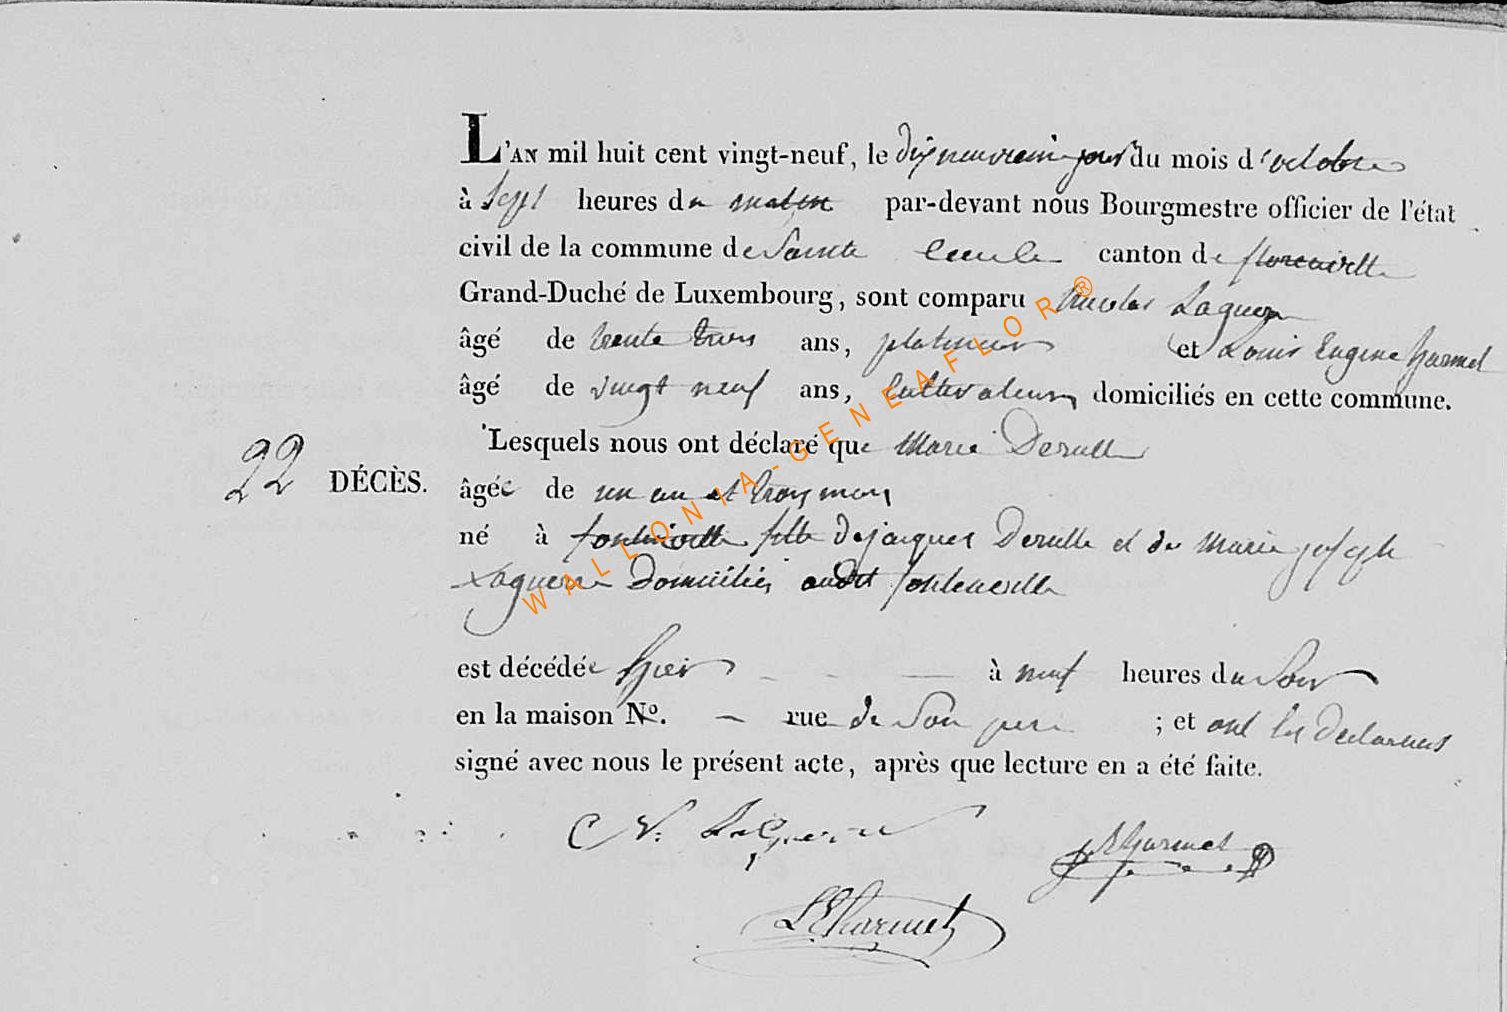 L'AN mil huit cent vingt-neuf, le dix neuvieme jour du mois d'octobre
à Sept heures du matin par-devant nous Bourgmestre officier de l'état
civil de la commune de Sainte Cecile canton de florenville
Grand-Duché de Luxembourg, sont comparu Nicolas Laguerre
âgé de trente trois ans, platineur et Louis Eugene harmel
âgé de vingt neuf ans, Cultivateur domiciliés en cette commune.
Lesquels nous ont déclaré que Marie Derulle
22 DÉCÈS. âgée de un an et trois mois
né à fontenoille fille de jacques Derulle et de Marie joseph
Laguerre Domiciliés audit fontenoille
est décédée hier à neuf heures du Soir
en la maison N°. — rue de Son pere ; et ont les declarans
signé avec nous le présent acte, après que lecture en a été faite.
N. Laguerre
harmel
LEharmel
WALLONIA-GENEAFLOR®